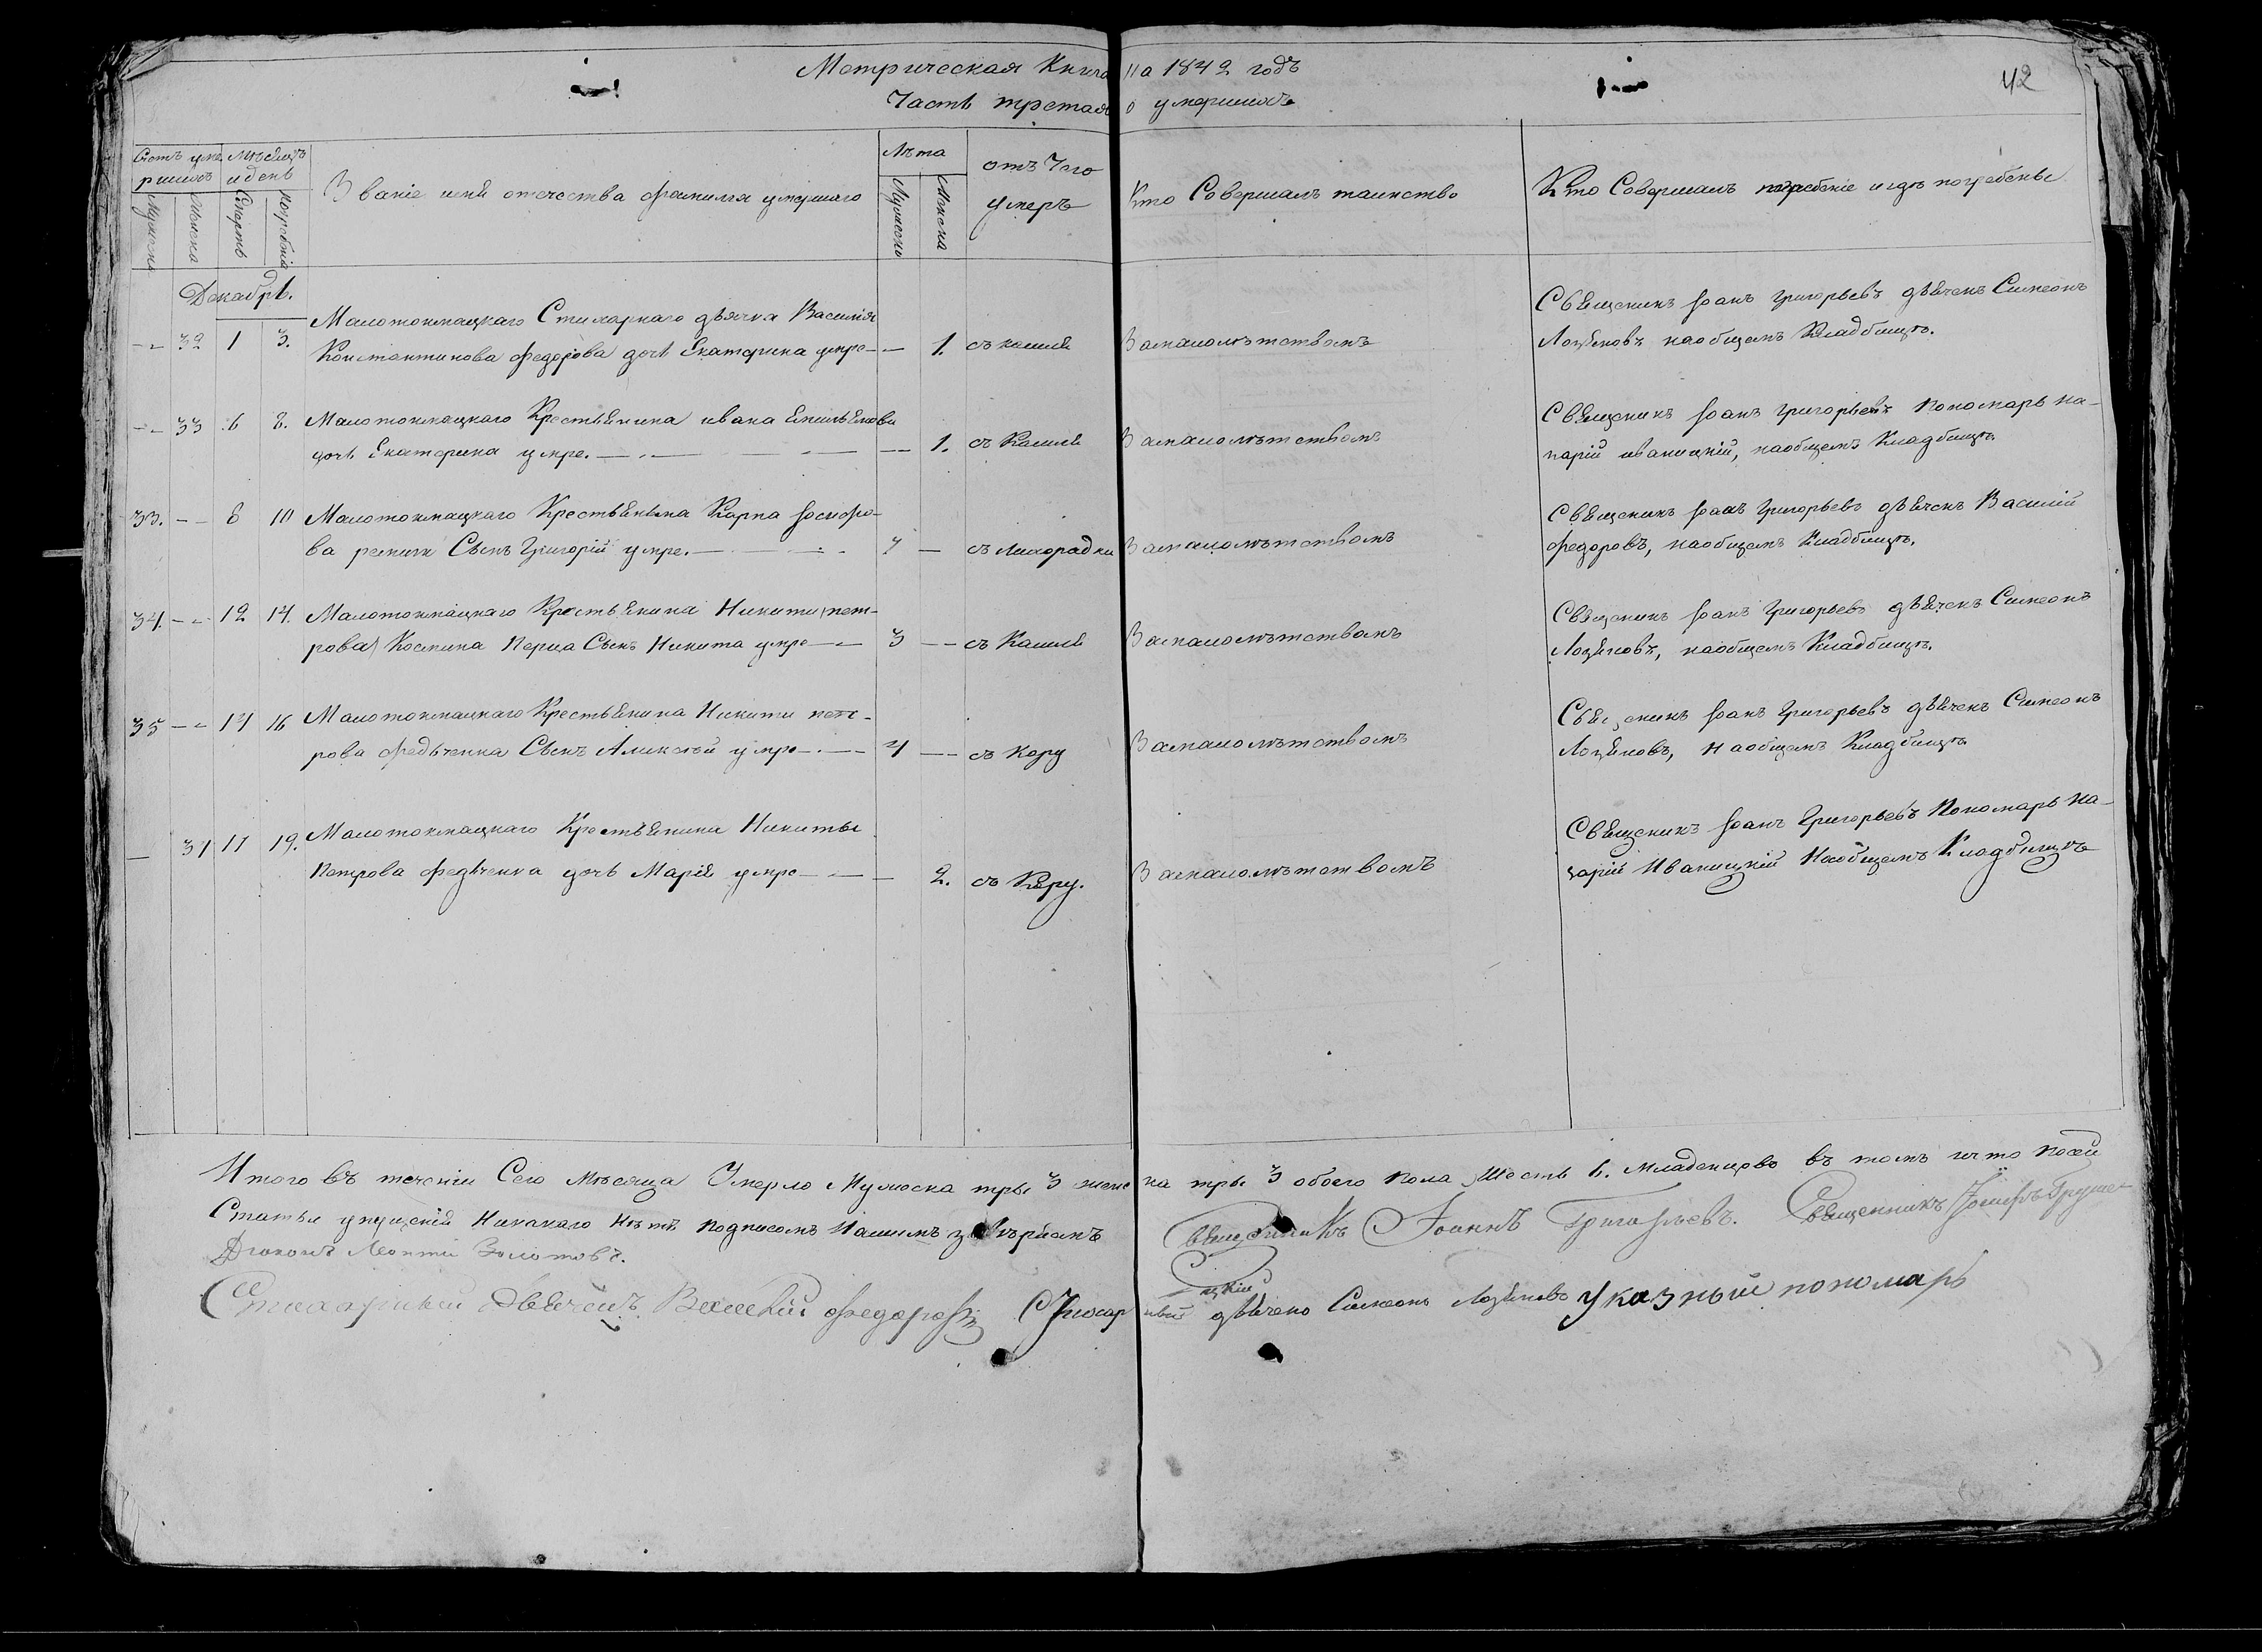 Метрическая Книга на 1842 годъ
42
Часть третая о умершихъ
Счетъ уме
ршихъ
Мѣсяцъ
и день
Мужеска
Женска
Смерть
погребенія
Званіе имя отечества фамилія умершаго
Лѣта
Мужеска
Женска
отъ Чего
умеръ
Кто Совершалъ таинство
Кто Совершалъ погребеніе и гдѣ погребены
Декабрь.
-- 32 1 3. Малотокмацкаго Стихарнаго дьячка Василія
Константинова федорова дочь Екатерина умре — 1. съ кашля
За малолѣтствомъ
Священикъ Іоанъ Григорьевъ дьячекъ Симеонъ
Лозяновъ на общемъ Кладбищѣ.
-- 33 6 8. Малотокмацкаго Крестьянина ивана Емильянова
дочь Екатерина умре. — 1. съ Кашля
За малолѣтствомъ
Священикъ Іоанъ Григорьевъ Пономарь На-
зарій иваницкій, на общемъ Кладбищѣ
33. -- 8 10 Малотокмацкаго Крестьянина Карпа Іосифо-
ва Сынъ Григорій умре. — 7 — съ лихорадки
За малолѣтствомъ
Священикъ Іоанъ Григорьевъ дьячекъ Василій
федоровъ, на общемъ Кладбищѣ.
34. -- 12 14. Малотокмацкаго Крестьянина Никити пет-
рова Сынъ Никита умре — 3 — съ Кашля
За малолѣтствомъ
Священикъ Іоанъ Григорьевъ дьячекъ Симеонъ
Лозяновъ, на общемъ Кладбищѣ.
35 -- 14 16 Малотокмацкаго Крестьянина Никити пет-
рова федьченка Сынъ Алексѣй умре — 4 — съ кору
За малолѣтствомъ
Священикъ Іоанъ Григорьевъ дьячекъ Симеонъ
Лозяновъ, на общемъ Кладбищѣ
— 34 17 19. Малотокмацкаго Крестьянина Никиты
Петрова федьченка дочь Марія умре — 2. съ Кору.
За малолѣтствомъ
Священикъ Іоанъ Григорьевъ Пономарь На-
зарій Иваницкій На общемъ Кладбищѣ
Итого въ теченіи Сего Мѣсяца Умерло Мужеска три 3 женска три 3 обоего пола Шесть 6. Младенцовъ въ томъ что посей
Статьи упущенія Никакаго Нѣтъ подписомъ Нашимъ завѣряемъ
Священникъ Іоаннъ Григорьевъ. Священникъ Іосифъ Грушец
цкій
Діаконъ Леонтій Золотовъ.
Стихарный Дьячекъ Василій федоровъ Стихарный дьячекъ Симеонъ Лозяновъ указный пономарь